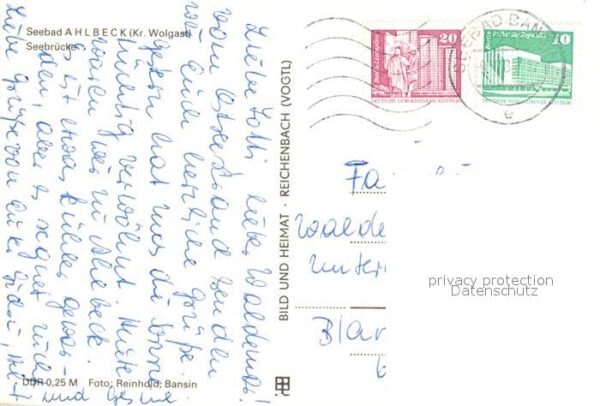 Seebad AHLBECK (Kr. Wolgast)
Seebrücke
Liebe Lotti, lieber Waldemar!
Vom Ostseestrand senden
wir Euch herzliche Grüße.
Gestern hat uns die Sonne
verwöhnt. Heute
waren wir in Ahlbeck.
Es ist etwas kühler gewor-
den, aber es regnet nicht
Liebe Grüße von
und
DDR 0,25 M Foto: Reinhold, Bansin
BILD UND HEIMAT · REICHENBACH (VOGTL)
20
DEUTSCHE DEMOKRATISCHE REPUBLIK
10
Berlin Palast der Republik
DEUTSCHE DEMOKRATISCHE REPUBLIK
SEEBAD BANSIN
e
Fa
Walde
Unter
Blan
privacy protection
Datenschutz